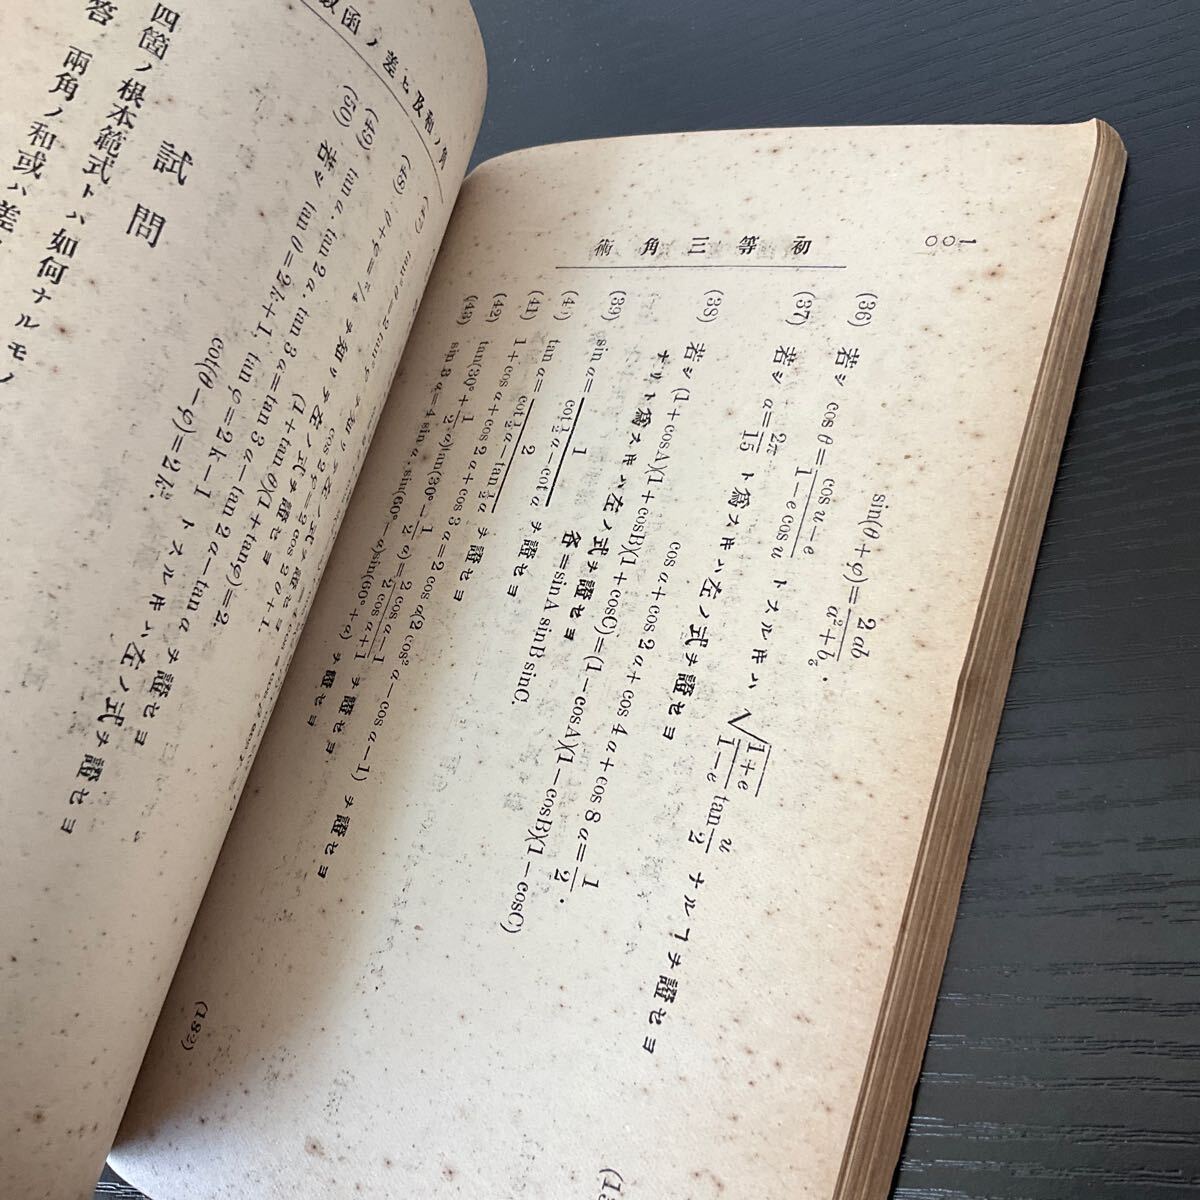 一〇〇
初等三角術
sin(θ+φ)=2ab/(a²+b²).
(36) 若シ cos θ=(cos u−e)/(1−e cos u) トスル𪜈ハ √((1+e)/(1−e)) tan u/2 ナルヿヲ證セヨ
(37) 若シ α=2π/15 ト爲ス𪜈ハ左ノ式ヲ證セヨ
cos α+cos 2α+cos 4α+cos 8α=1/2.
(38) 若シ (1+cosA)(1+cosB)(1+cosC)=(1−cosA)(1−cosB)(1−cosC)
ナリト爲ス𪜈ハ左ノ式ヲ證セヨ
各=sinA sinB sinC.
(39) sin α=1/(cot ½α−cot α) ヲ證セヨ
tan α=2/(cot ½α−tan ½α) ヲ證セヨ
(41) 1+cos α+cos 2α+cos 3α=2 cos α(2 cos²α−cos α−1) ヲ證セヨ
(42) tan(30°+½α)tan(30°−½α)=(2 cos α−1)/(2 cos α+1) ヲ證セヨ
(43) sin 3α=4 sin α.sin(60°−α)sin(60°+α) ヲ證セヨ
角ノ和及ヒ差ノ函數
(48) θ+φ=π/4 ヲ知リテ左ノ式ヲ證セヨ
(1+tan θ)(1+tanφ)=2
(49) tan α.tan 2α.tan 3α=tan 3α−tan 2α−tan α ヲ證セヨ
(50) 若シ tan θ=2k+1, tan φ=2k−1 トスル𪜈ハ左ノ式ヲ證セヨ
cot(θ−φ)=2k².
(182)
試問
四箇ノ根本範式トハ如何ナルモノ
答 兩角ノ和或ハ差